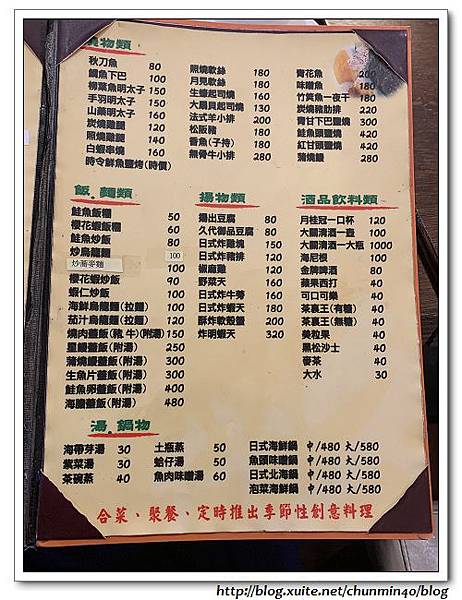 物類
秋刀魚 80
鯛魚下巴 100
柳葉魚明太子 150
手羽明太子 150
山藥明太子 160
炭燒雞腿 120
照燒雞腿 140
白蝦串燒 160
時令鮮魚鹽烤(時價)
照燒軟絲 180
月見軟絲 180
生蠔起司燒 160
大扇貝起司燒 130
法式羊小排 200
松阪豬 180
香魚(子持) 180
無骨牛小排 280
青花魚 200
味噌魚 180
竹筴魚一夜干 180
炭燒豬肋排 220
青甘下巴鹽燒
鮭魚頭鹽燒 420
紅甘頭鹽燒 420
蒲燒鰻 280
飯.麵類
鮭魚飯糰 50
櫻花蝦飯糰 60
鮭魚炒飯 80
炒烏龍麵 100
炒蕎麥麵 100
櫻花蝦炒飯 90
蝦仁炒飯 100
海鮮烏龍麵(拉麵) 100
茄汁烏龍麵(拉麵) 120
燒肉蓋飯(豬 牛)(附湯)150
蓋飯(附湯) 250
蒲燒鰻蓋飯(附湯) 300
生魚片蓋飯(附湯) 300
鮭魚卵蓋飯(附湯) 400
海膽蓋飯(附湯) 480
揚物類
揚出豆腐 80
久代御品豆腐 80
日式炸雞塊 150
日式炸豬排 120
椒麻雞 120
野菜天 160
日式炸牛蒡 160
日式炸蝦天 180
酥炸軟殼蟹 200
炸明蝦天 320
酒品飲料類
月桂冠一口杯 120
大關清酒一壺 100
大關清酒一大瓶 1000
海尼根 100
金牌啤酒 80
蘋果西打 40
可口可樂 40
茶裏王(有糖) 40
茶裏王(無糖) 40
美粒果 40
黑松沙士 40
麥茶 40
大水 30
湯.鍋物
海帶芽湯 30
紫菜湯 30
茶碗蒸 40
土瓶蒸 50
蛤仔湯 50
魚肉味噌湯 60
日式海鮮鍋 中/480 大/580
魚頭味噌鍋 中/480 大/580
日式北海鍋 中/480 大/580
泡菜海鮮鍋 中/480 大/580
合菜、聚餐、定時推出季節性創意料理
http://blog.xuite.net/chunmin40/blog